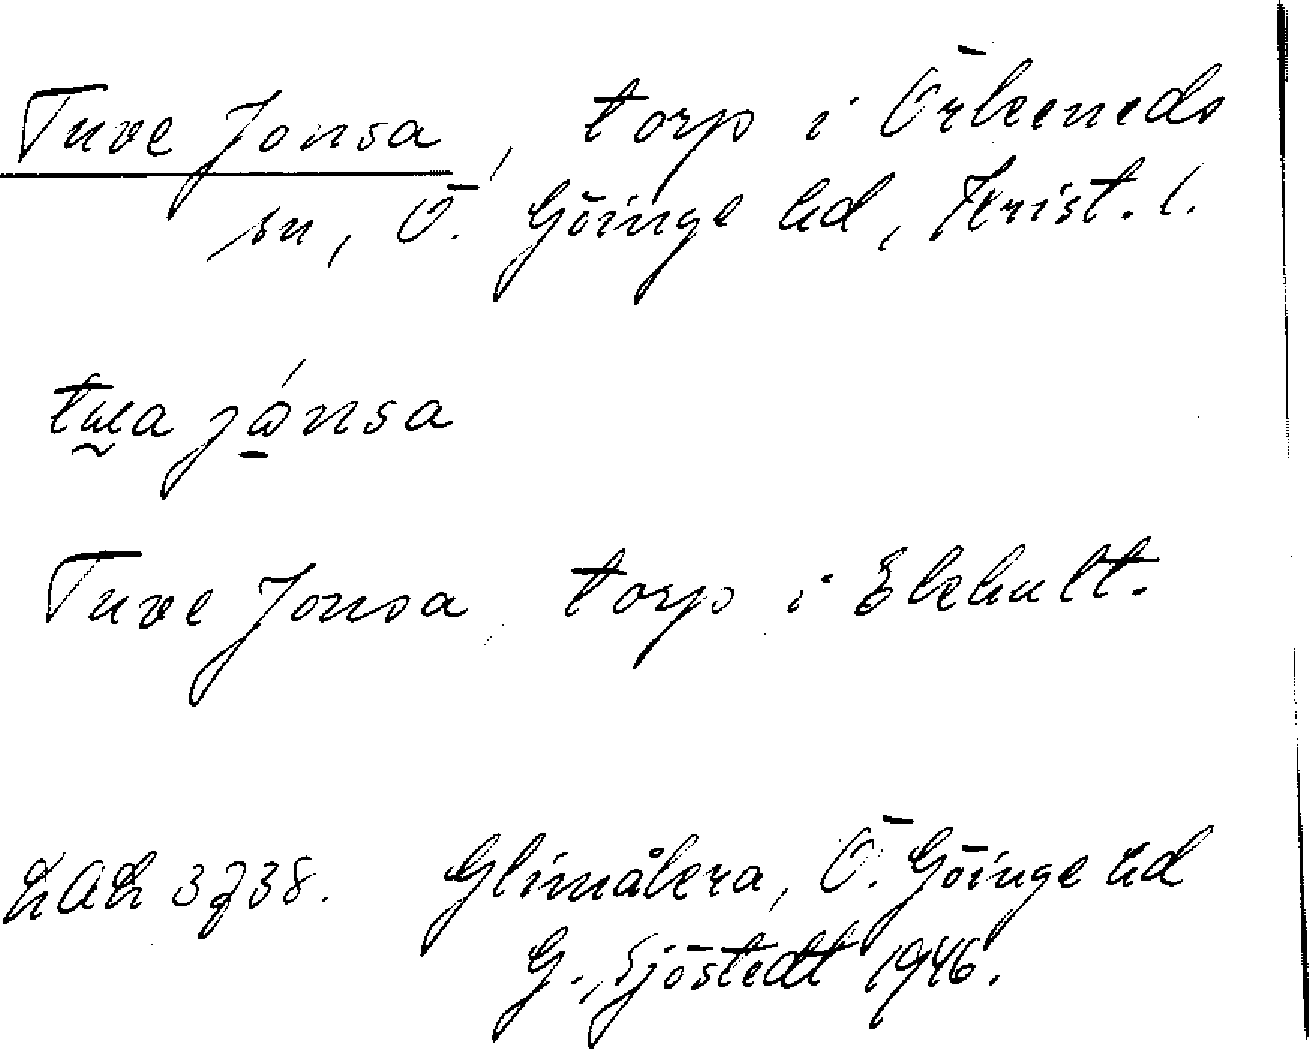 Tuve Jonsa, torp i Örkeneds
sn, Ö. Göinge hd, Krist. l.
jónsa
Tuve Jonsa, torp i Ekehult.
LAL 3738. Glimåkra, Ö. Göinge hd
G. Sjöstedt 1946.